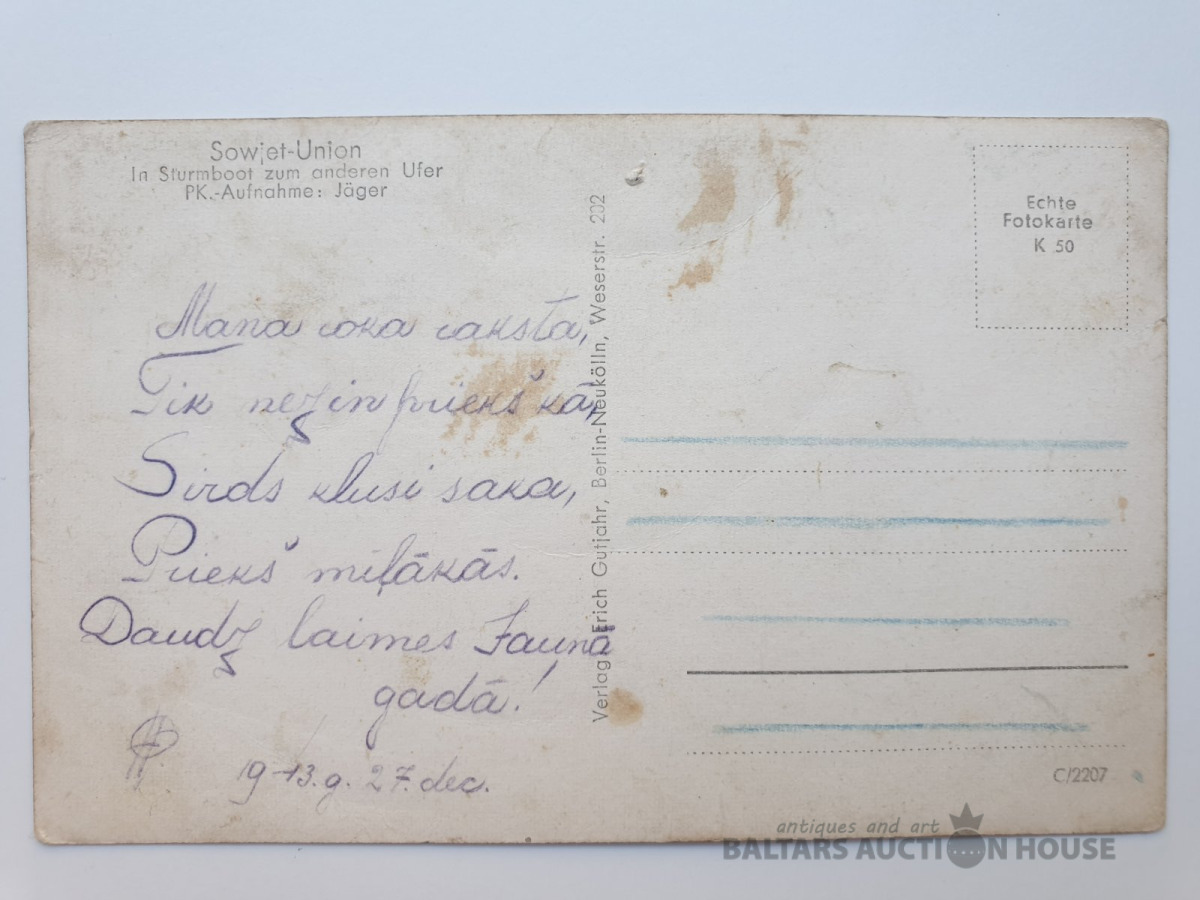 Sowjet-Union
In Sturmboot zum anderen Ufer
PK.-Aufnahme: Jäger
Mana roka raksta,
Tik nezin priekš kā,
Sirds klusi saka,
Priekš mīļākās.
Daudz laimes Jaunā
gadā!
1943.g. 27. dec.
Verlag Erich Gutjahr, Berlin-Neukölln, Weserstr. 202
Echte
Fotokarte
K 50
C/2207
antiques and art
BALTARS AUCTION HOUSE